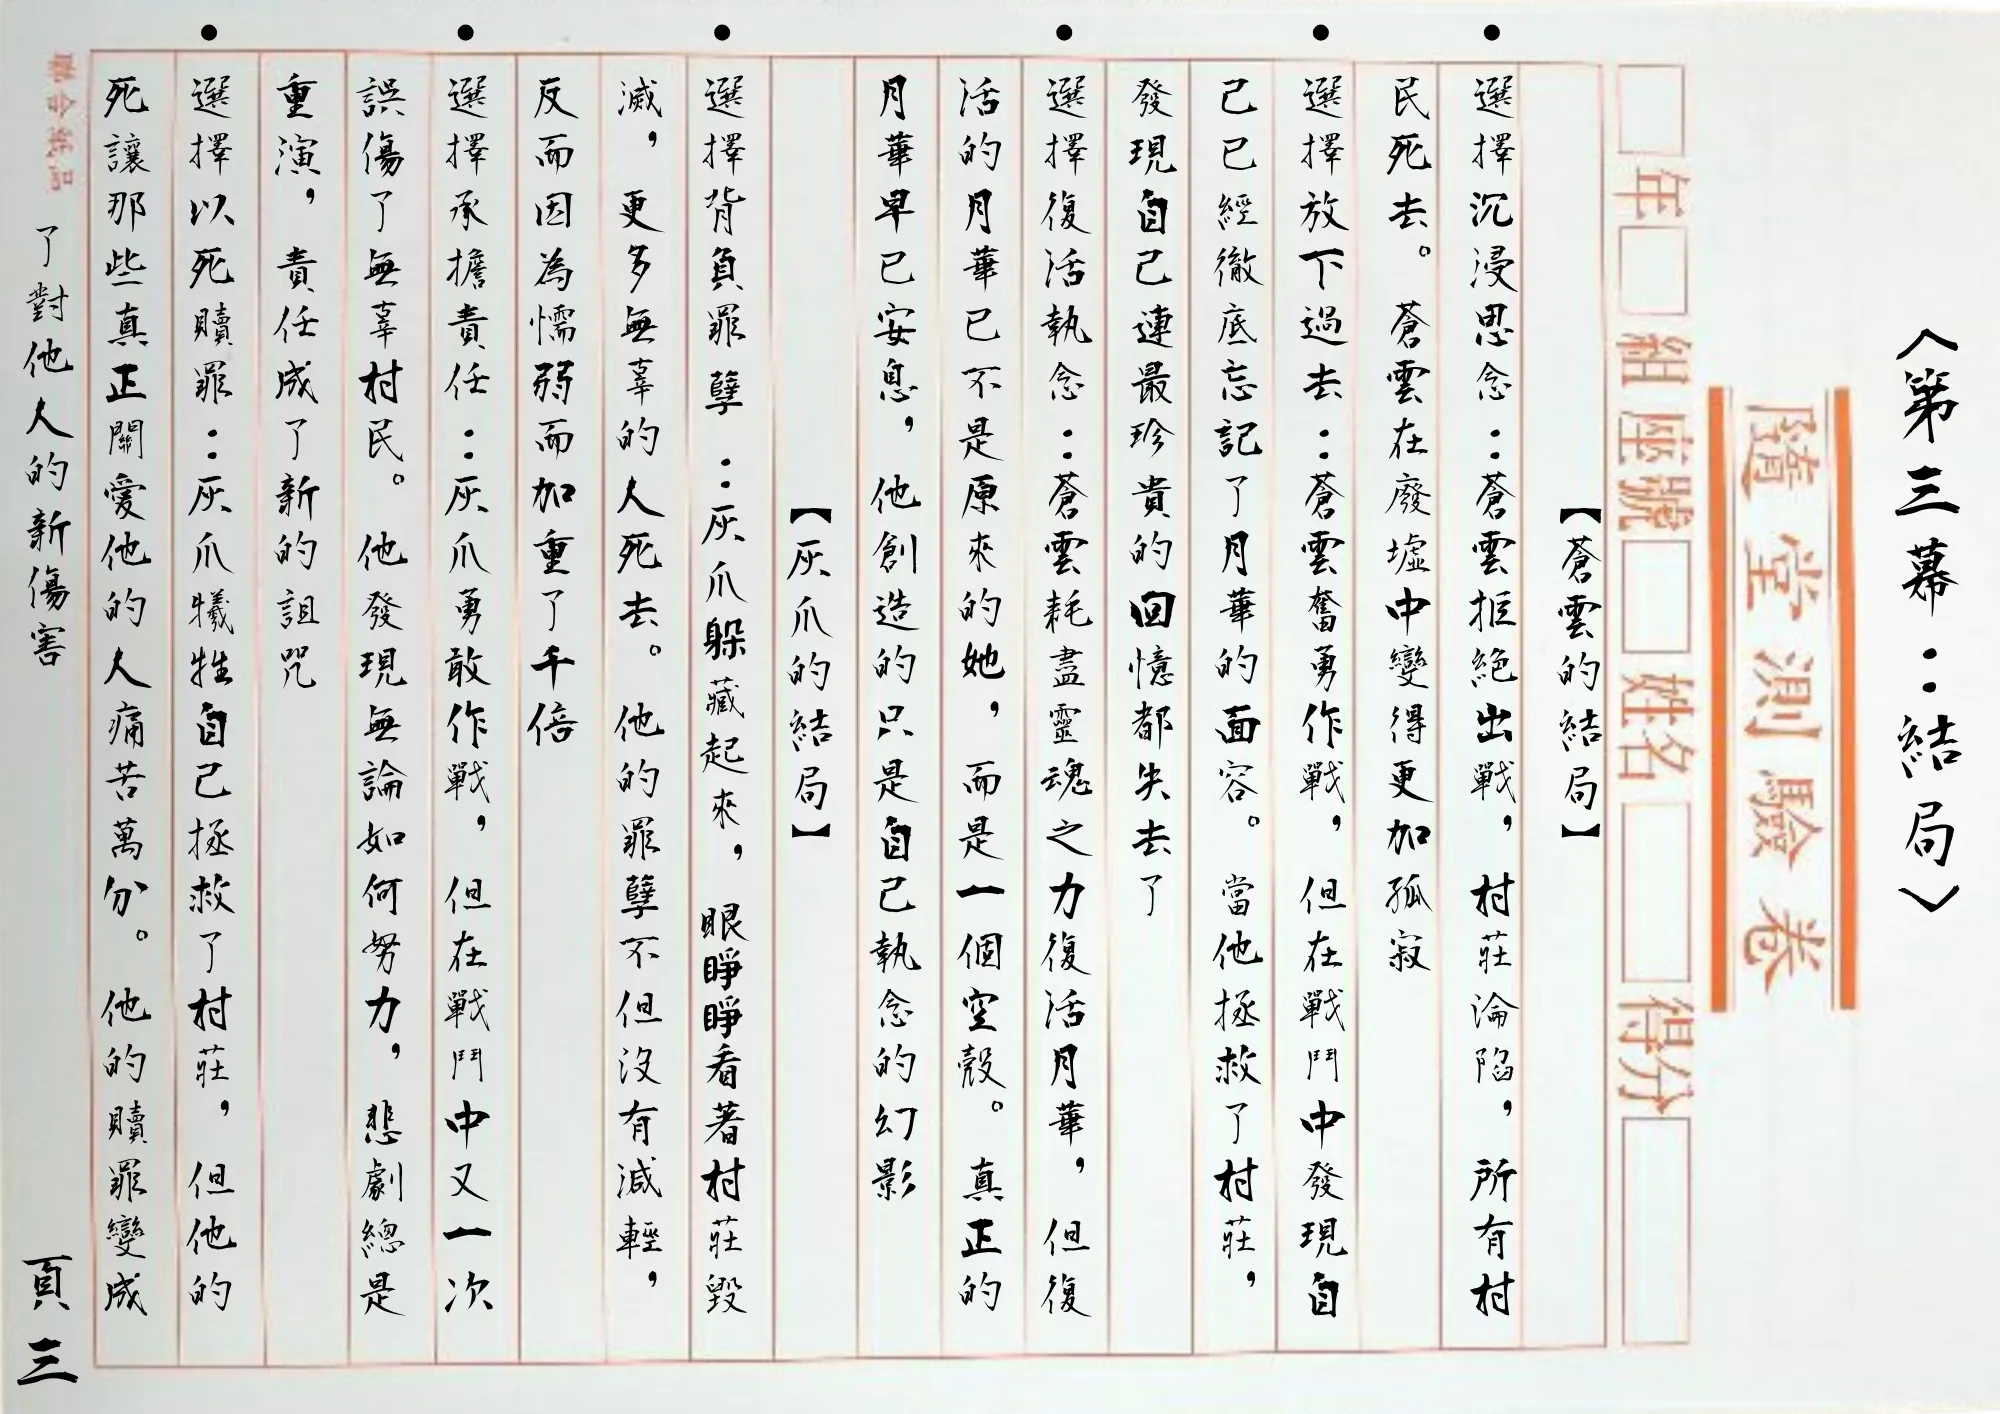 〈第三幕：結局〉
隨堂測驗卷
年 組 座號 姓名 得分
【蒼雲的結局】
選擇沉浸思念：蒼雲拒絕出戰，村莊淪陷，所有村
民死去。蒼雲在廢墟中變得更加孤寂
選擇放下過去：蒼雲奮勇作戰，但在戰鬥中發現自
己已經徹底忘記了月華的面容。當他拯救了村莊，
發現自己連最珍貴的回憶都失去了
選擇復活執念：蒼雲耗盡靈魂之力復活月華，但復
活的月華已不是原來的她，而是一個空殼。真正的
月華早已安息，他創造的只是自己執念的幻影
【灰爪的結局】
選擇背負罪孽：灰爪躲藏起來，眼睜睜看著村莊毀
滅，更多無辜的人死去。他的罪孽不但沒有減輕，
反而因為懦弱而加重了千倍
選擇承擔責任：灰爪勇敢作戰，但在戰鬥中又一次
誤傷了無辜村民。他發現無論如何努力，悲劇總是
重演，責任成了新的詛咒
選擇以死贖罪：灰爪犧牲自己拯救了村莊，但他的
死讓那些真正關愛他的人痛苦萬分。他的贖罪變成
了對他人的新傷害
聯合紙品
頁三